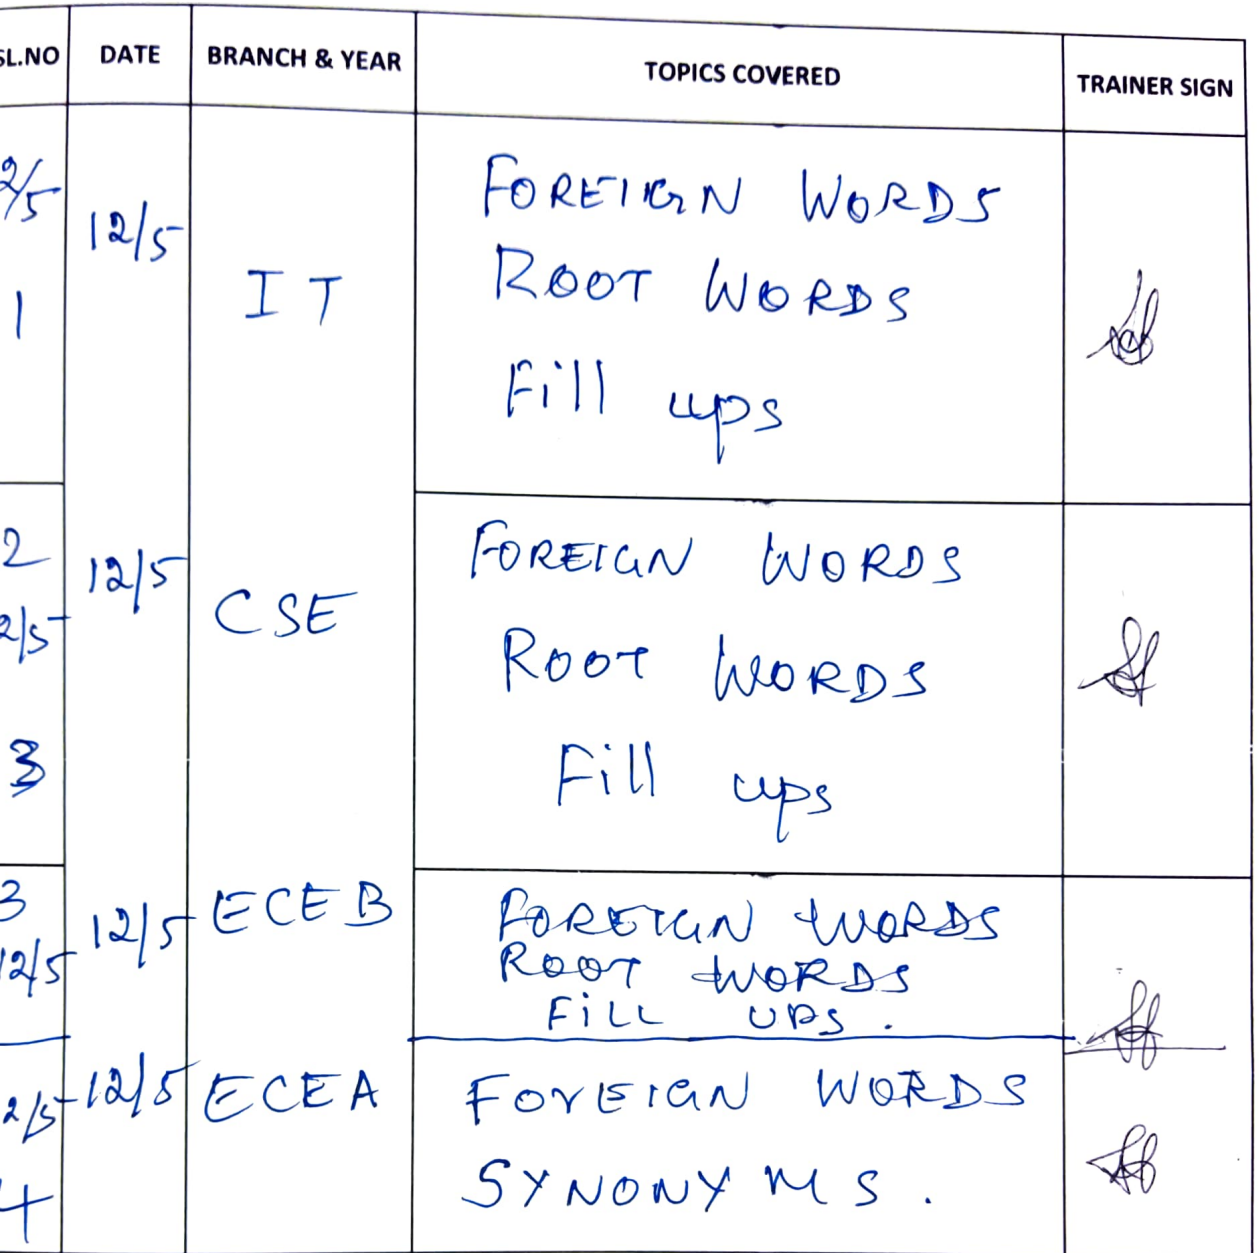 SL.NO DATE BRANCH & YEAR TOPICS COVERED TRAINER SIGN
2/5 12/5 FOREIGN WORDS
1 IT ROOT WORDS
Fill ups
2 12/5 FOREIGN WORDS
2/5 CSE ROOT WORDS
3 Fill ups
3 12/5 ECE B FOREIGN WORDS
12/5 ROOT WORDS
FiLL UPS.
2/5 12/5 ECE A FOREIGN WORDS
4 SYNONYMS.